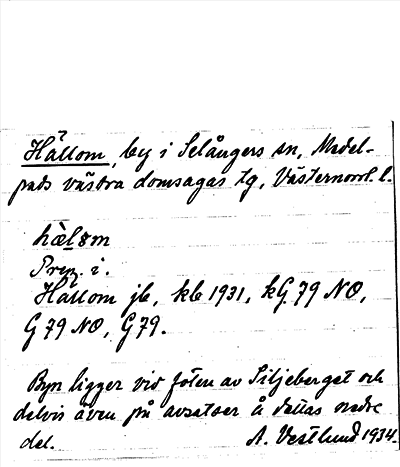 Hällom, by i Selångers sn, Medel-
pads västra domsagas tg, Västernorrl. l.
hæ̀l8m
Prep. i.
Hällom jb, kb 1931, kG 79 NO,
G 79 NO, G79.
Byn ligger vid foten av Siljeberget och
delvis även på avsatser å dettas nedre
del. A. Vestlund 1934.